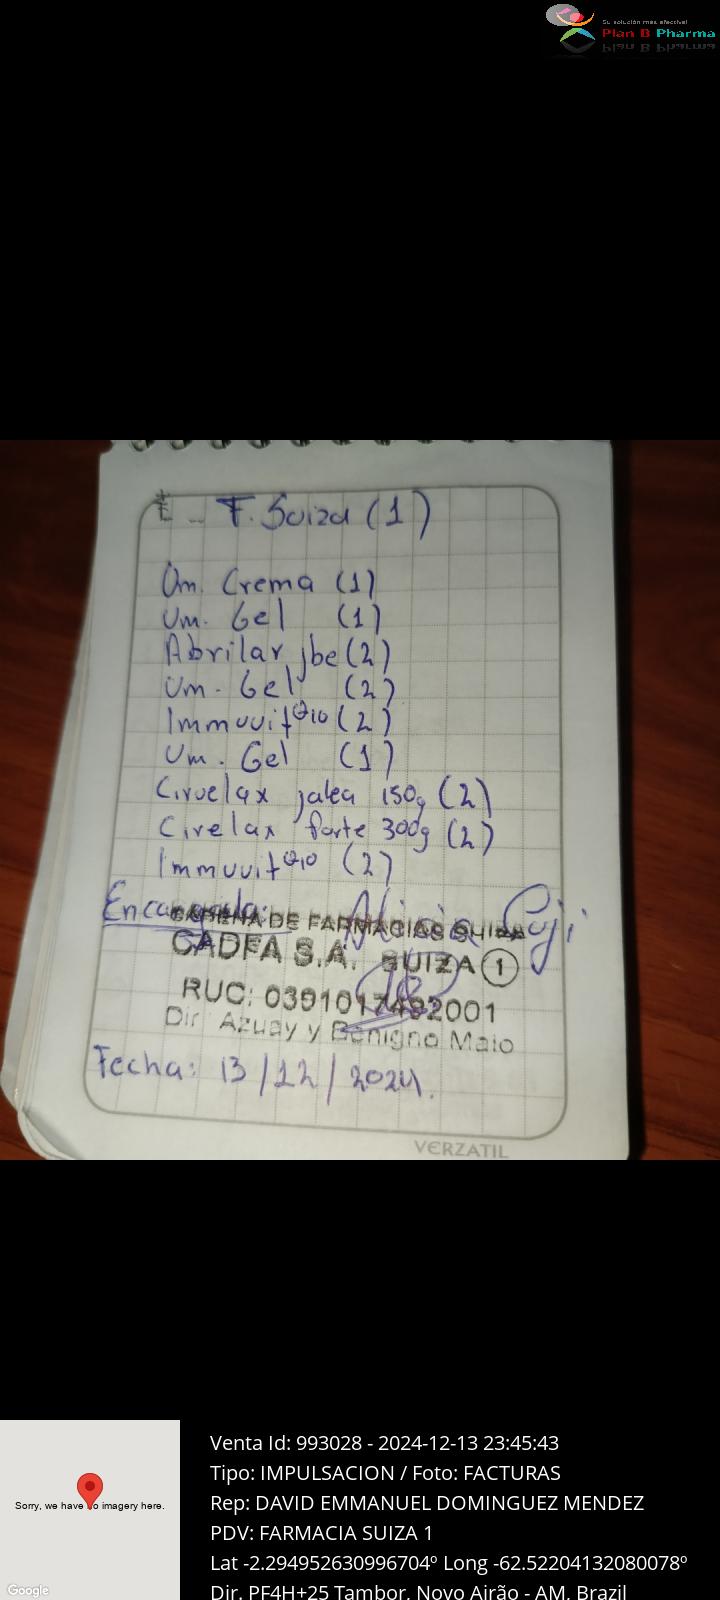 Su solución más efectiva!
Plan B Pharma
F. Suiza (1)
Um. Crema (1)
Um. Gel (1)
Abrilar jbe (2)
Um. Gel (2)
Immuvit Q10 (2)
Um. Gel (1)
Ciruelax jalea 150g (2)
Cirelax forte 300g (2)
Immuvit Q10 (2)
Encargada:
CADENA DE FARMACIAS SUIZA
CADFA S.A. SUIZA 1
RUC: 0391017492001
Dir: Azuay y Benigno Malo
Fecha: 13/12/2024.
VERZATIL
Sorry, we have no imagery here.
Google
Venta Id: 993028 - 2024-12-13 23:45:43
Tipo: IMPULSACION / Foto: FACTURAS
Rep: DAVID EMMANUEL DOMINGUEZ MENDEZ
PDV: FARMACIA SUIZA 1
Lat -2.294952630996704º Long -62.52204132080078º
Dir. PF4H+25 Tambor, Novo Airão - AM, Brazil